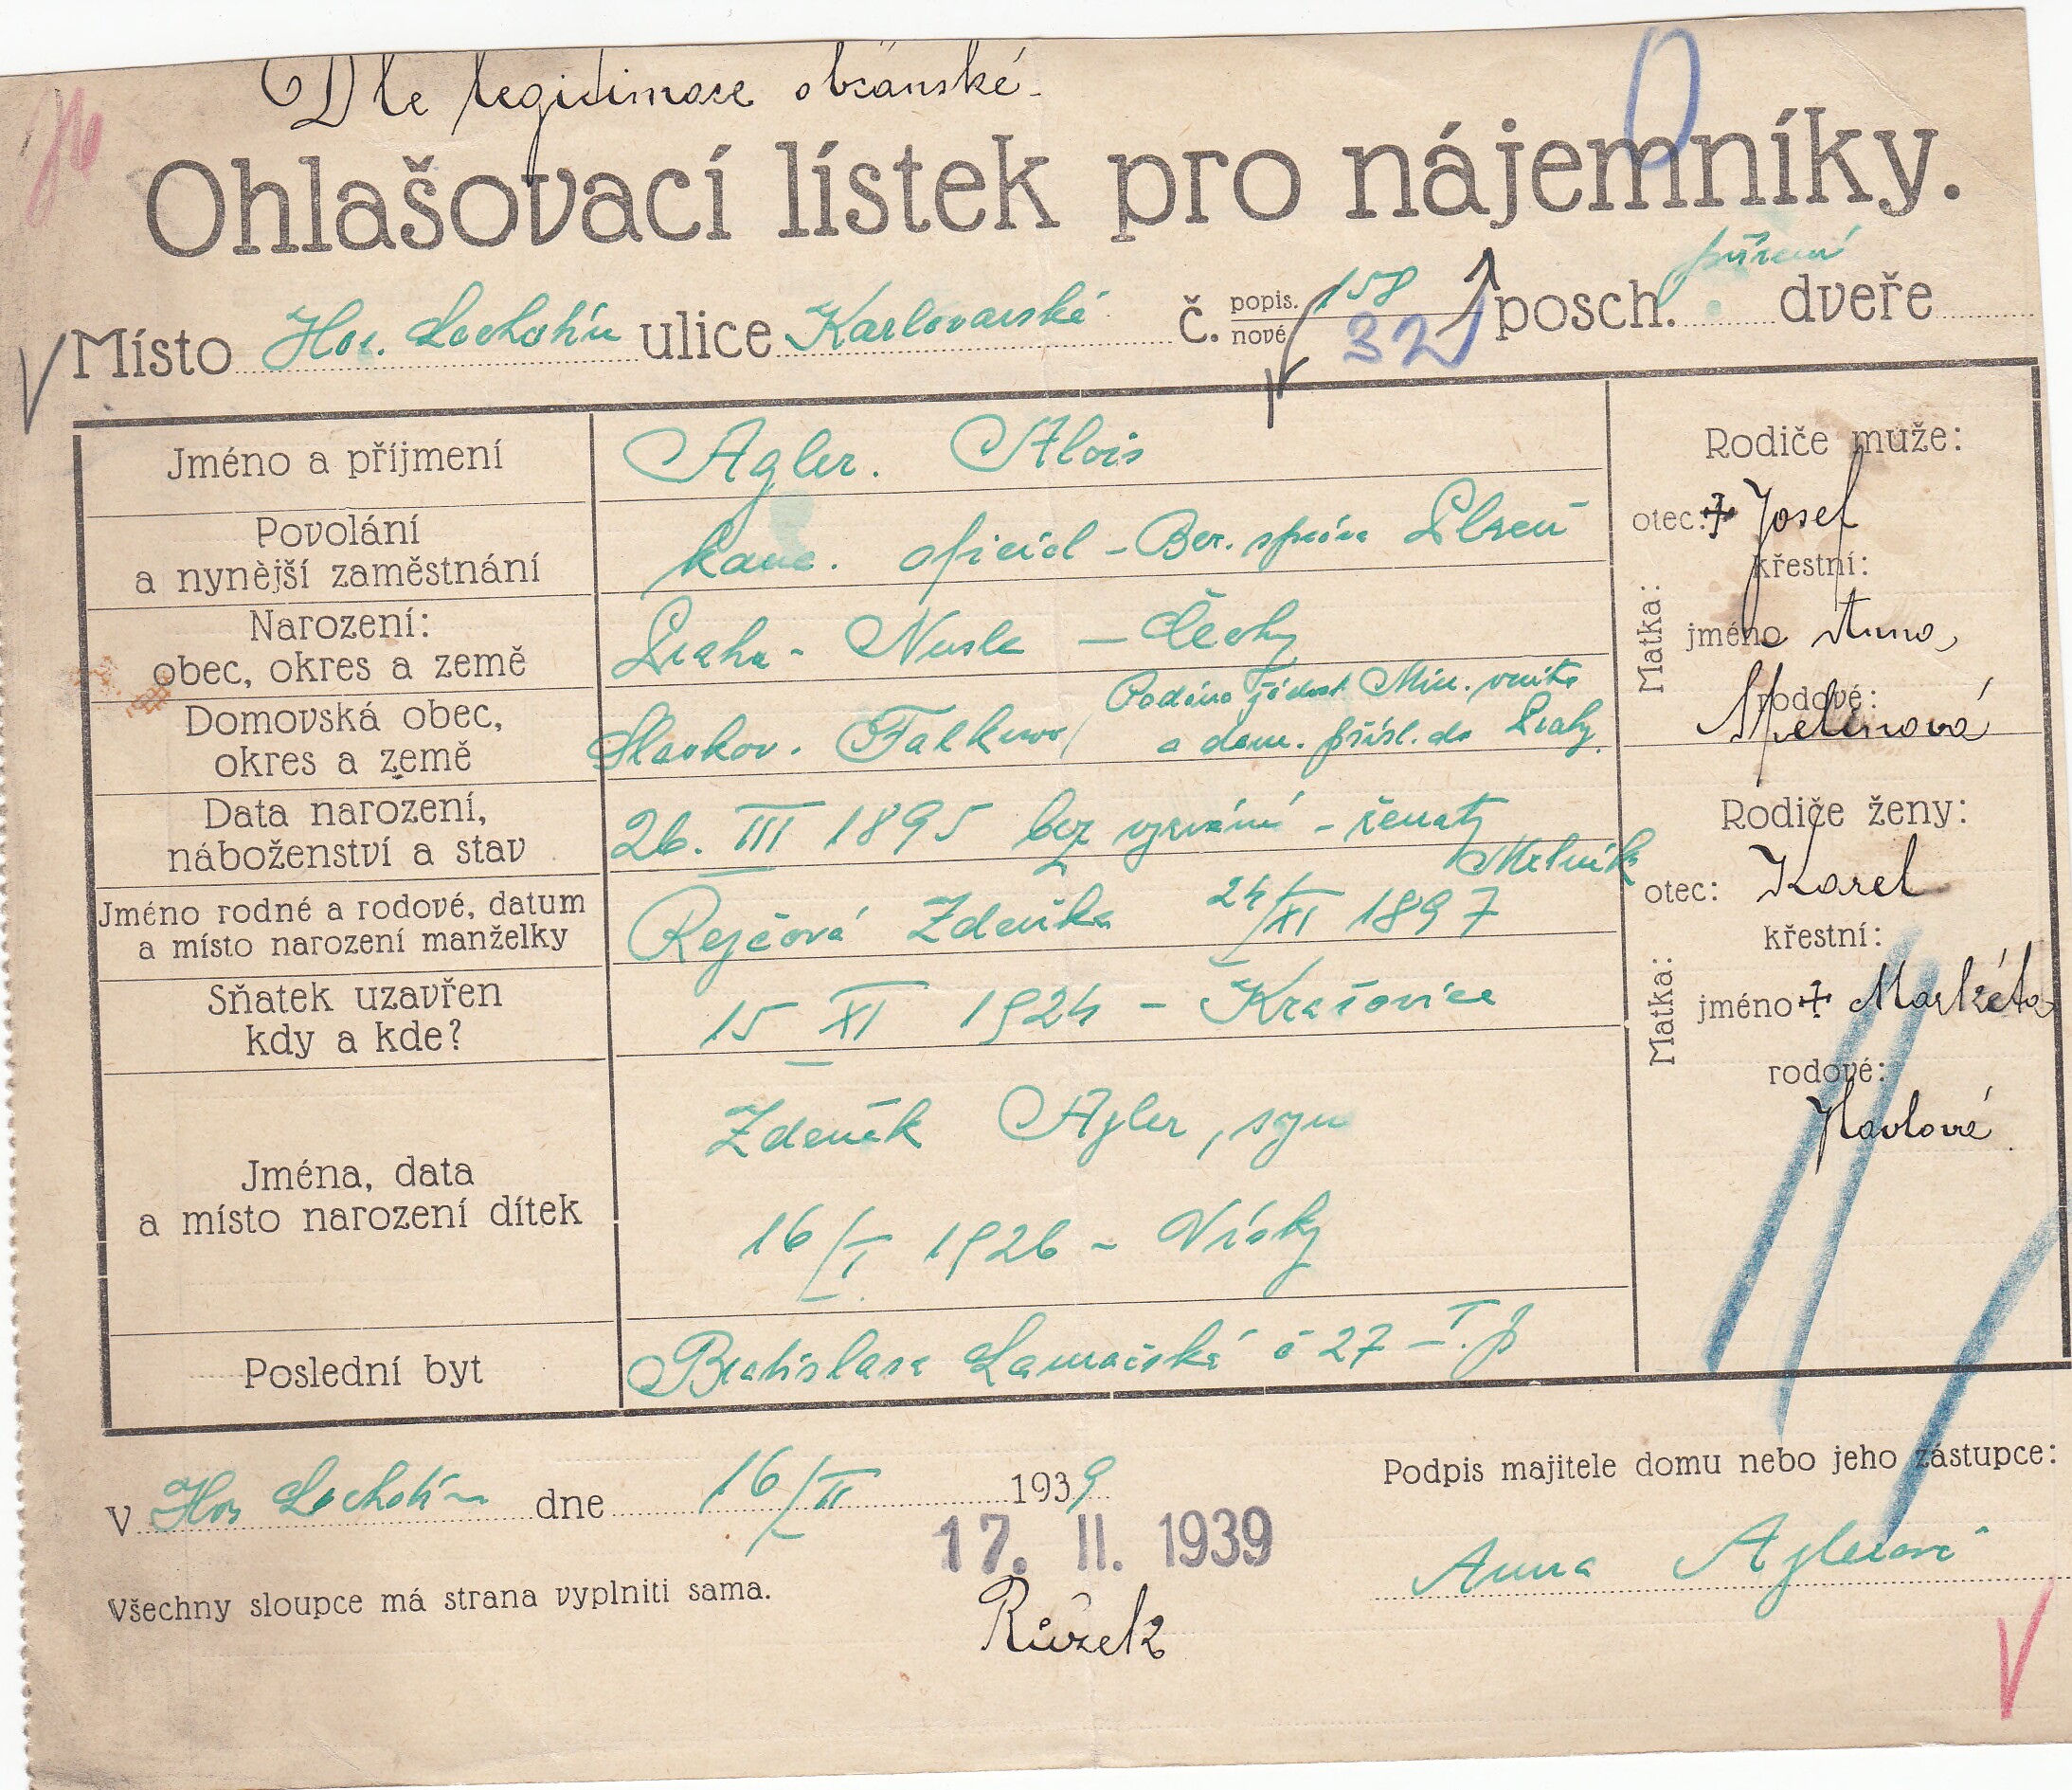 Dle legitimace občanské.
Ohlašovací lístek pro nájemníky.
Místo Hor. Lochotín ulice Karlovarská č. popis. 158 nové 32 posch. přízemí dveře
Jméno a příjmení Agler. Alois
Povolání a nynější zaměstnání kanc. oficiál - Ber. správa Plzeň
Narození: obec, okres a země Praha - Nusle - Čechy
Domovská obec, okres a země Slavkov. Falknov / Podána žádost Min. vnitra
o dom. přísl. do Prahy.
Data narození, náboženství a stav 26. III 1895 bez vyznání - ženatý
Jméno rodné a rodové, datum a místo narození manželky Rejčová Zdeňka 24/XI 1897 Mělník
Sňatek uzavřen kdy a kde? 15 XI 1924 - Krašovice
Jména, data a místo narození dítek
Zdeněk Agler, syn
16/I. 1926 - Vísky
Poslední byt Bratislava Lamačská č 27 - I. p
Rodiče muže:
otec: + Josef
Matka:
křestní:
jméno Anna,
rodové:
Rodiče ženy:
otec: Karel
Matka:
křestní:
jméno + Markéta
rodové:
Havlová
V Hor Lochotín dne 16/II 1939
17. II. 1939
Růžek
Podpis majitele domu nebo jeho zástupce:
Anna Aglerová
Všechny sloupce má strana vyplniti sama.